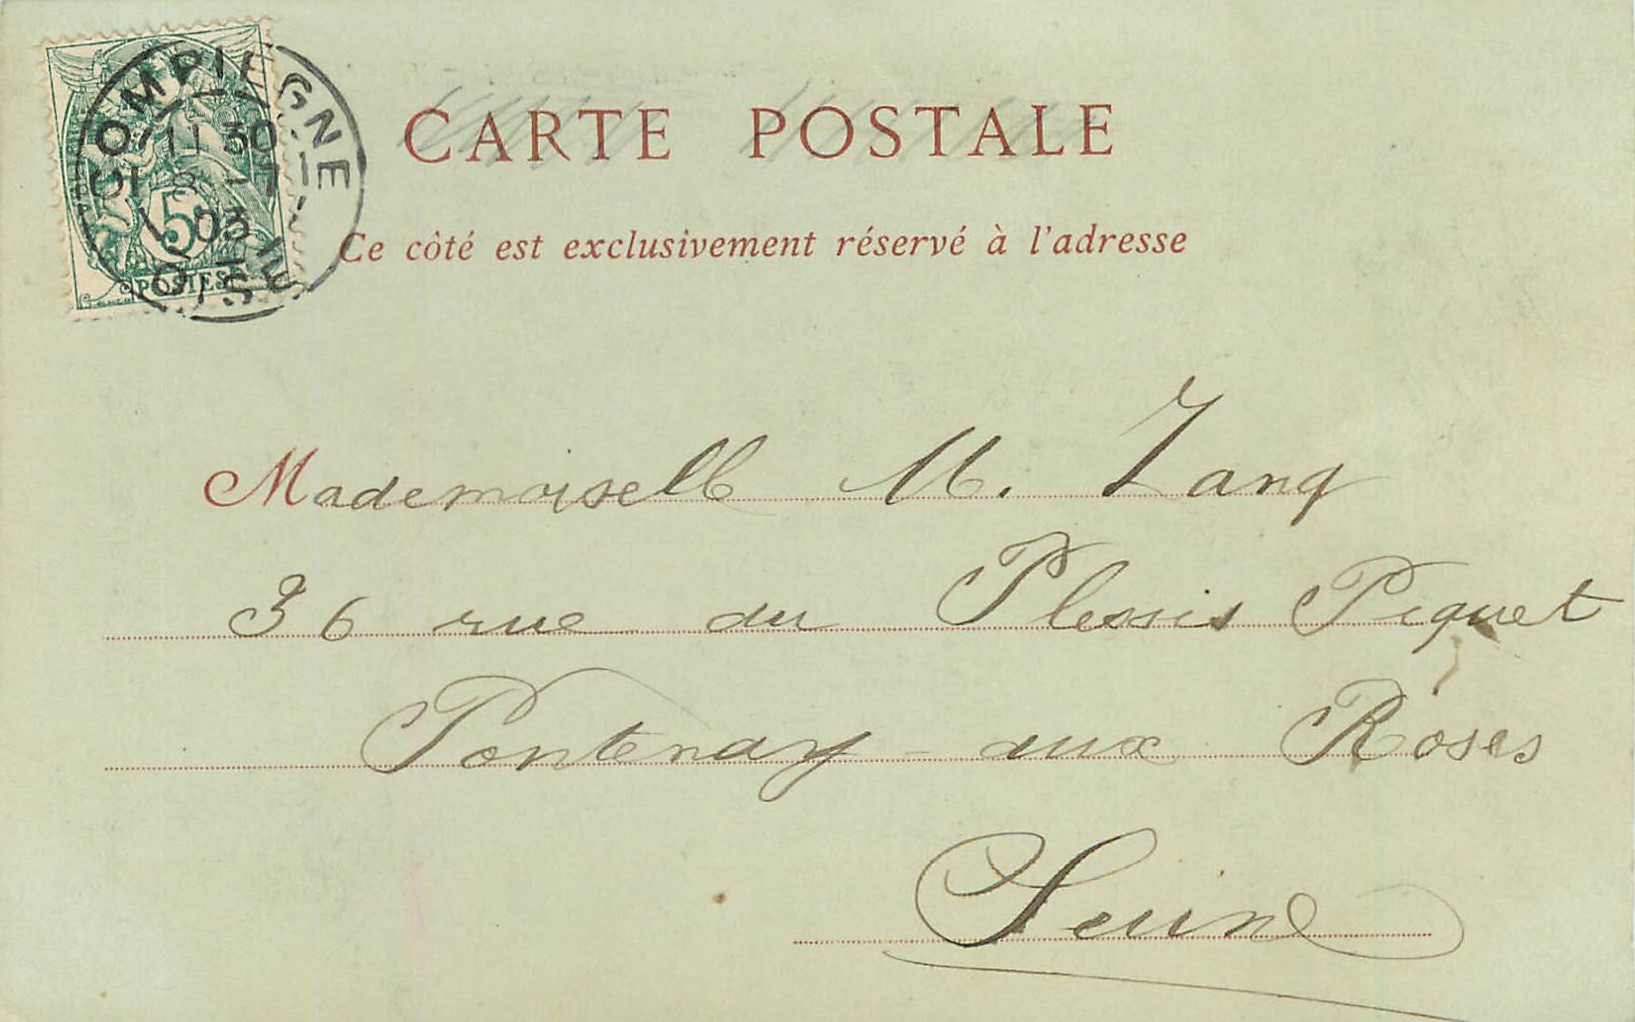 COMPIEGNE
11 30
8 -7
03
OISE
5
POSTES
CARTE POSTALE
Ce côté est exclusivement réservé à l'adresse
Mademoiselle M. Zang
36 rue du Plessis Piquet
Fontenay-aux Roses
Seine